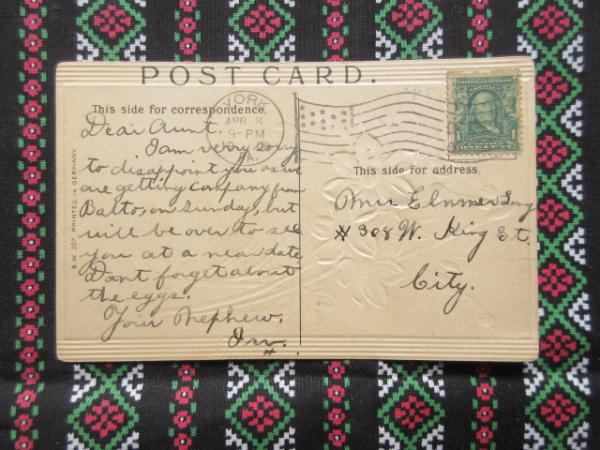 POST CARD.
This side for correspondence.
YORK
APR 3
9-PM
PA.
1
This side for address.
B.W. 307 PRINTED IN GERMANY
Dear Aunt
I am very sorry
to disappoint you as we
are getting company from
Balto, on Sunday, but
will be over to see
you at a near date
Dont forget about
the eggs.
Your Nephew.
Irv.
Mrs Elmer
# 308 W. King St.
City.